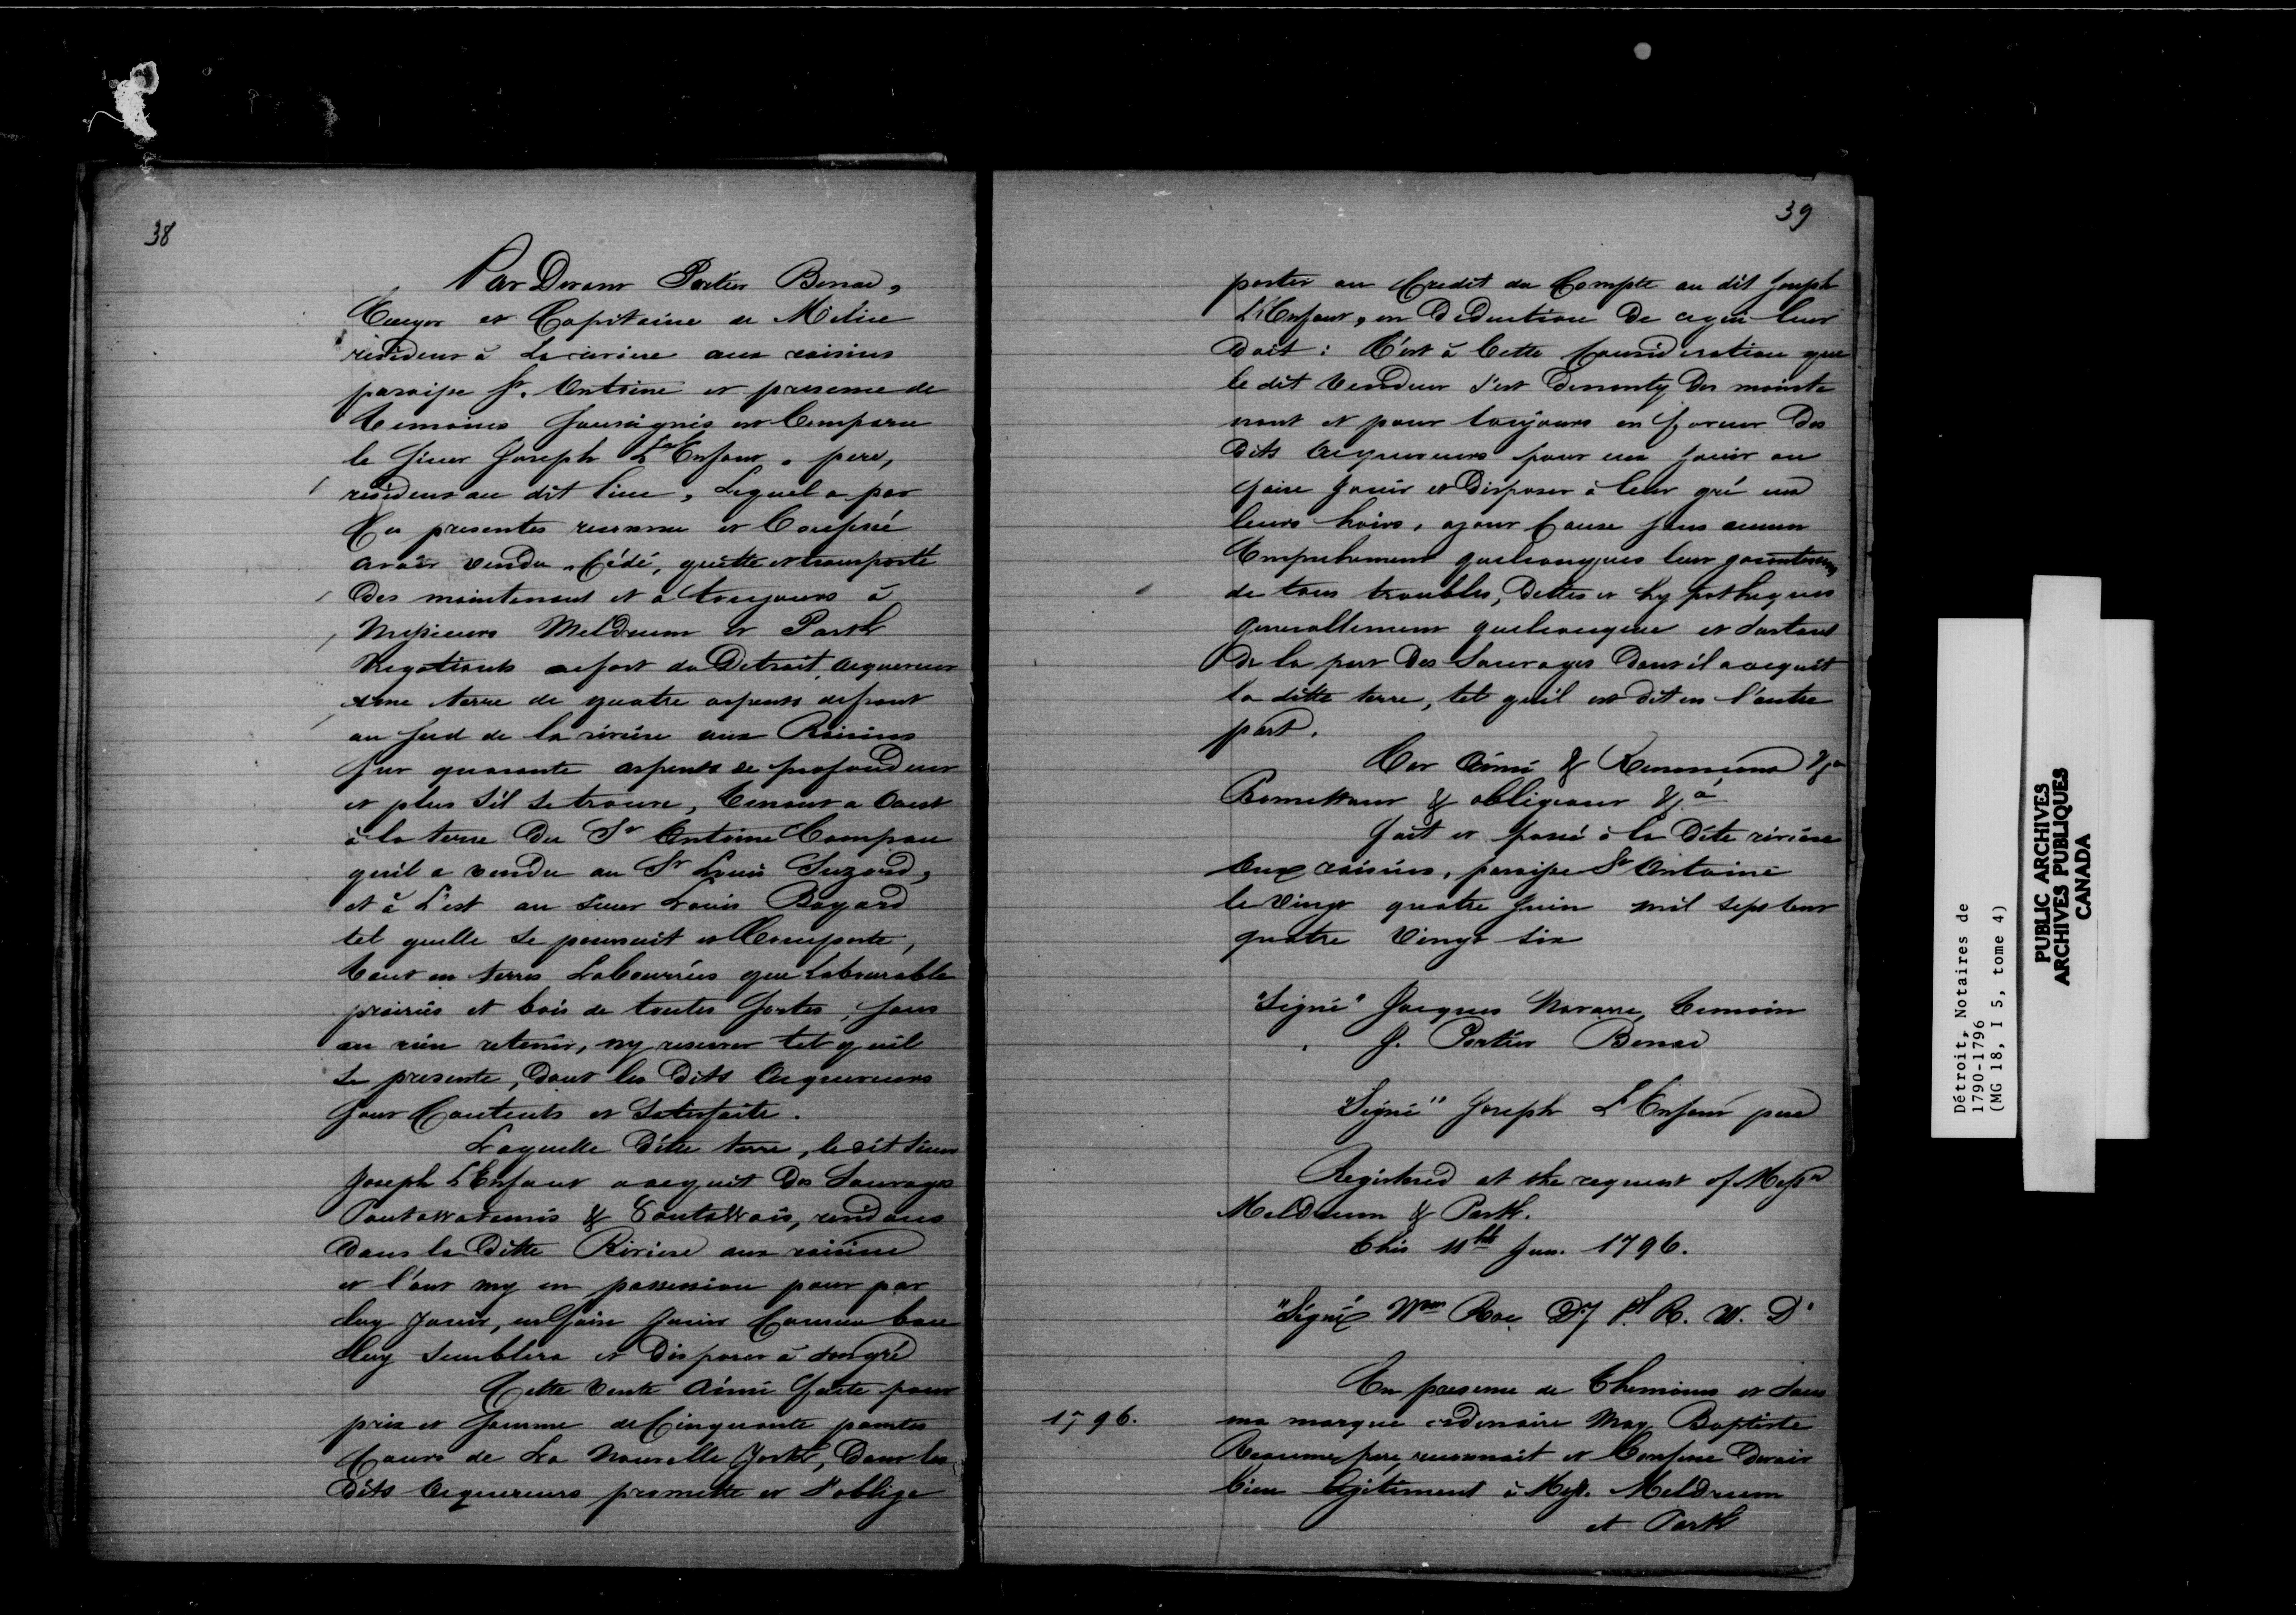 38
Par Devant Portier Benac,
Ecuyer et Capitaine de Milice
résident à La riviere aux raisins
paroisse St. Antoine et presence de
temoins Soussignés est Comparu
le Sieur Joseph L'Enfant, pere,
résident au dit lieu, Lequel a par
Ces presentes reconnu et Confessé
avoir vendu, Cédé, quitté et transporté
des maintenant et a toujours à
Messieurs Meldrum et Park
Negotiants au fort du Detroit, acquereur
une terre de quatre arpents de front
au sud de la riviere aux Raisins
sur quarante arpents de profondeur
et plus s'il se trouve, tenant a Ouest
à la terre du Sr Antoine Campau
qu'il a vendu au Sr Louis Suzord,
et à L'est au sieur Louis Bayard
tel quelle se poursuit et Comporte,
tant en terres Labourées que labourable
prairies et bois de toutes sortes, sans
en rien retenir, ny reserver tel quil
se presente, dont les dits acquereurs
sont Contents et Satisfaits.
Laquelle ditte terre, le dit sieur
Joseph L'Enfant a acquit des Sauvages
Poutowatemis & 8outa8ois, residans
dans la ditte Riviere aux raisins
et l'ont my en possession pour par
luy Jouir, en faire Jouir Comme bon
luy semblera et disposer à son gré
Cette vente ainsi faite pour
prix et somme de Cinquante pountes
Cours de La Nouvelle York, dont les
dits acquereurs promette et s'oblige
39
porter au Credit du Compte au dit Joseph
L'Enfant, en déduction de ce qui leur
doit: C'est à Cette Consideration que
le dit vendeur s'est demonty des mainte
nant et pour toujours en faveur des
dits acquereurs pour en jouir ou
faire jouir et disposer à leur gré ou
leurs hoirs, ayant Cause sans aucun
Empechement quelconques leur garantissant
de tous troubles, dettes et hypotheques
generallement quelconque et surtout
de la part des Sauvages dont il a acquit
la ditte terre, tel quil est dit en l'autre
part.
Car Ainsi & Renonçant &a
Promettant & obligeant &a
fait et passé à la dite riviere
aux raisins, paroisse St Antoine
le vingt quatre Juin mil sept cent
quatre vingt six
"Signé" Jacques Navarre, temoin
J. Portier Benac
"Signé" Joseph L'Enfant pere
Registered at the request of Messrs
Meldrum & Park.
this 11th Jan. 1796.
"Signé" Wm Roe Dy R. W. D.
En presence de themoins et sous
1796.
ma marque ordinaire Moy Baptiste
Reaume, pere reconnait et Confesse devoir
bien legitiment à Messr. Meldrum
et Park
Détroit, Notaires de
1790-1796
(MG 18, I 5, tome 4)
PUBLIC ARCHIVES
ARCHIVES PUBLIQUES
CANADA